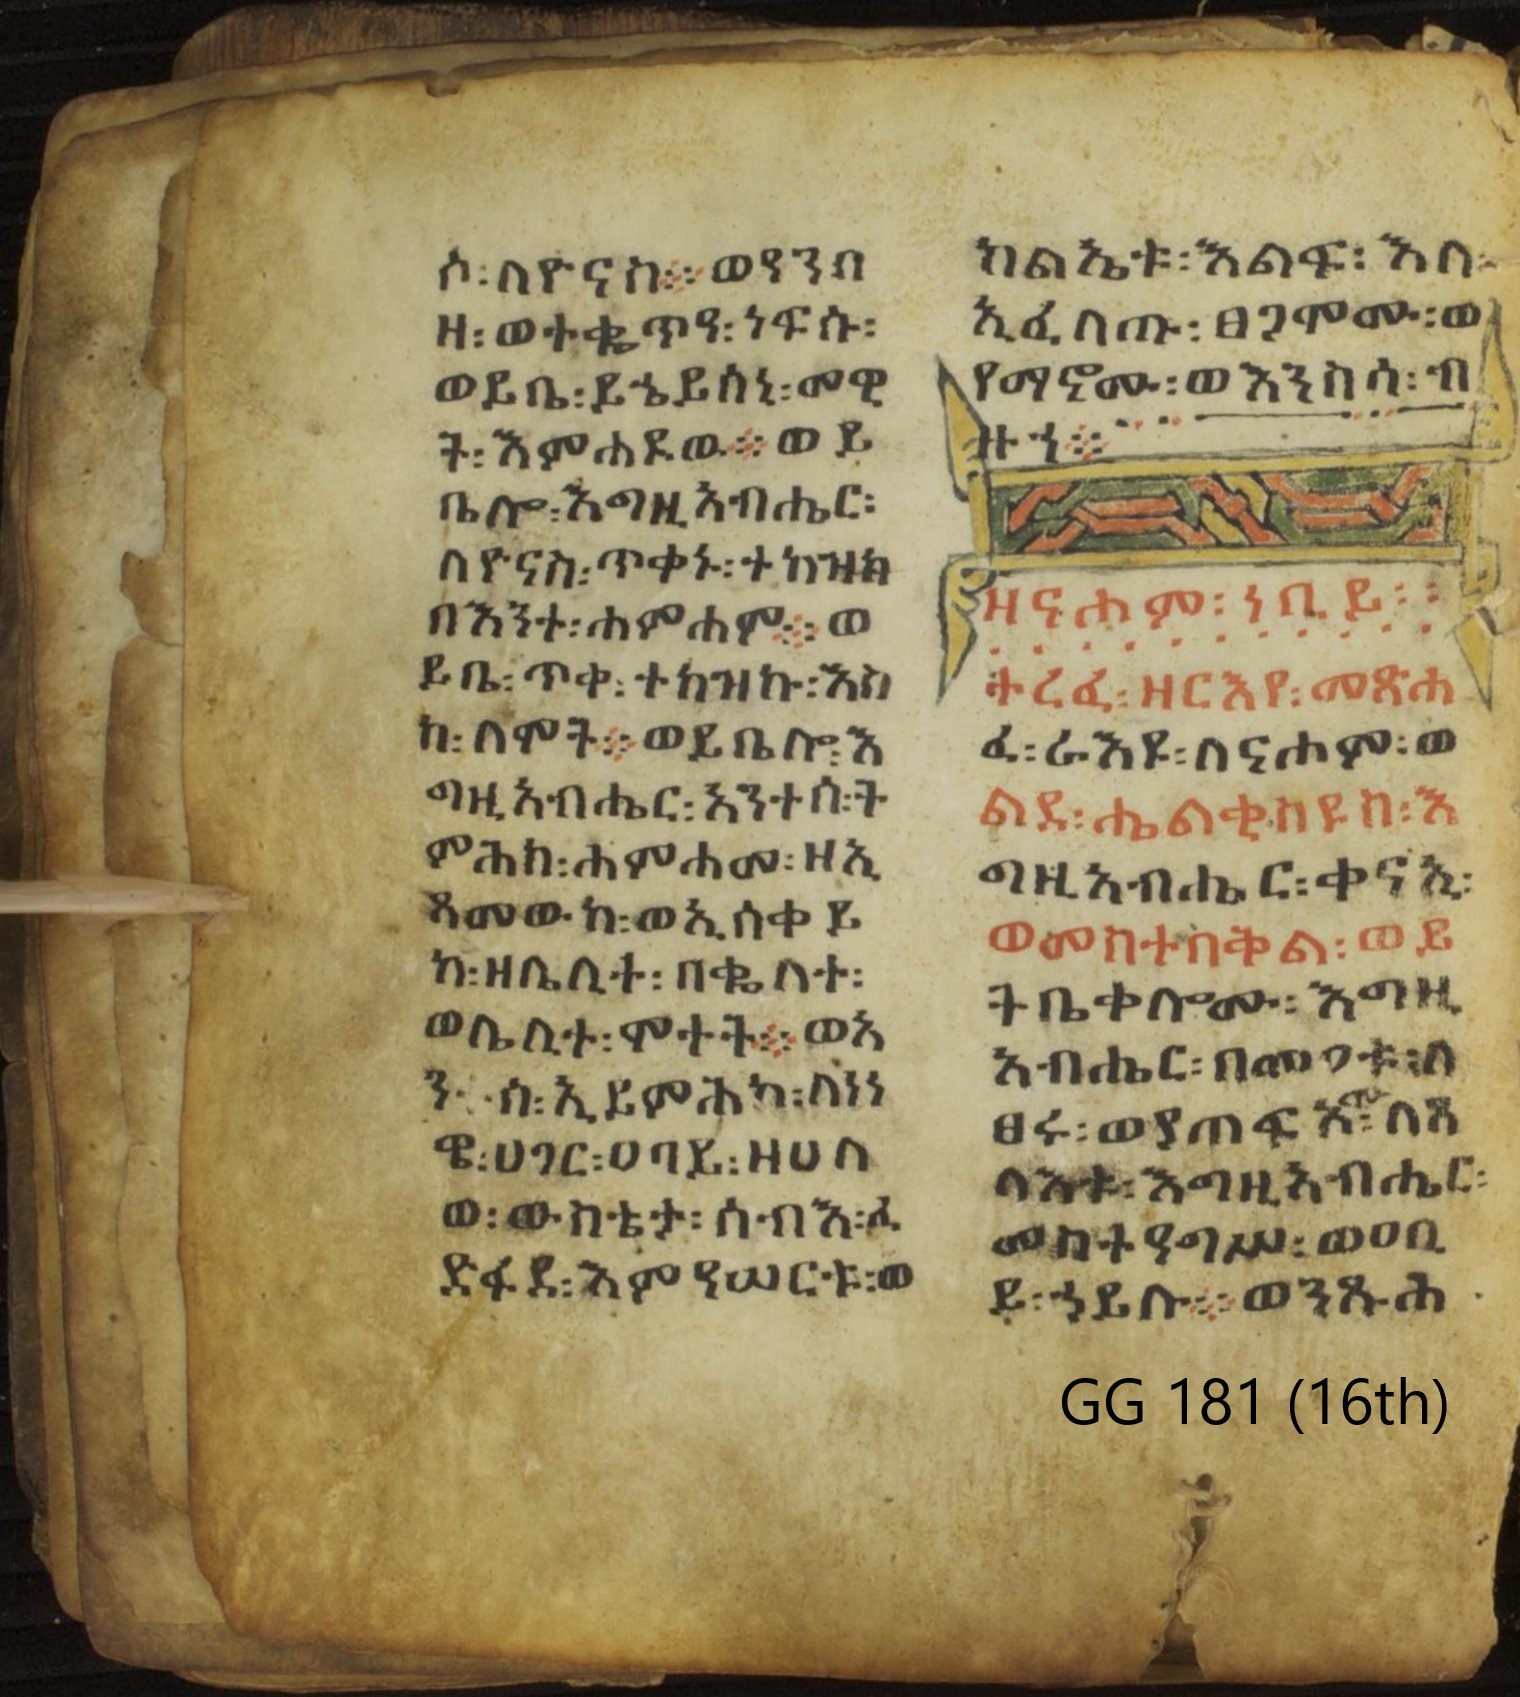 ሶ፡ለዮናስ፨ወየንብ
ዘ፡ወተቈጥዓ፡ነፍሱ፡
ወይቤ፡ይኄይሰኒ፡መዊ
ት፡እምሐይው፨ወይ
ቤሎ፡እግዚአብሔር፡
ለዮናስ፡ጥቀኑ፡ተከዝከ
በእንተ፡ሐምሐም፨ወ
ይቤ፡ጥቀ፡ተከዝኩ፡እስ
ከ፡ለሞት፨ወይቤሎ፡እ
ግዚአብሔር፡አንተሰ፡ት
ምሕክ፡ሐምሐመ፡ዘኢ
ጻመውከ፡ወኢሰቀይ
ከ፡ዘሌሊት፡በቈለት፡
ወሌሊተ፡ሞተት፨ወአ
ንሰ፡ኢይምሕካ፡ለነነ
ዌ፡ሀገር፡ዐባይ፡ዘሀለ
ወ፡ውስቴታ፡ሰብእ፡ፈ
ድፋደ፡እምዓሠርቱ፡ወ
ክልኤቱ፡እልፍ፡እለ፡
ኢፈለጡ፡ፀጋሞሙ፡ወ
የማኖሙ፡ወእንስሳ፡ብ
ዙኀ፨
ዘናሖም፡ነቢይ፡፡
ትረፈ፡ዘርእየ፡መጽሐ
ፈ፡ራእዩ፡ለናሖም፡ወ
ልደ፡ሔልቂስዩስ፡እ
ግዚአብሔር፡ቀናኢ፡
ወመስተበቅል፡ወይ
ትቤቀሎሙ፡እግዚ
አብሔር፡በመዓቱ፡ለ
ፀሩ፡ወያጠፍኦሙ፡ለጸ
ላእቱ፡እግዚአብሔር፡
መስተዓግሥ፡ወዐቢ
ይ፡ኃይሉ፨ወንጹሕ
GG 181 (16th)